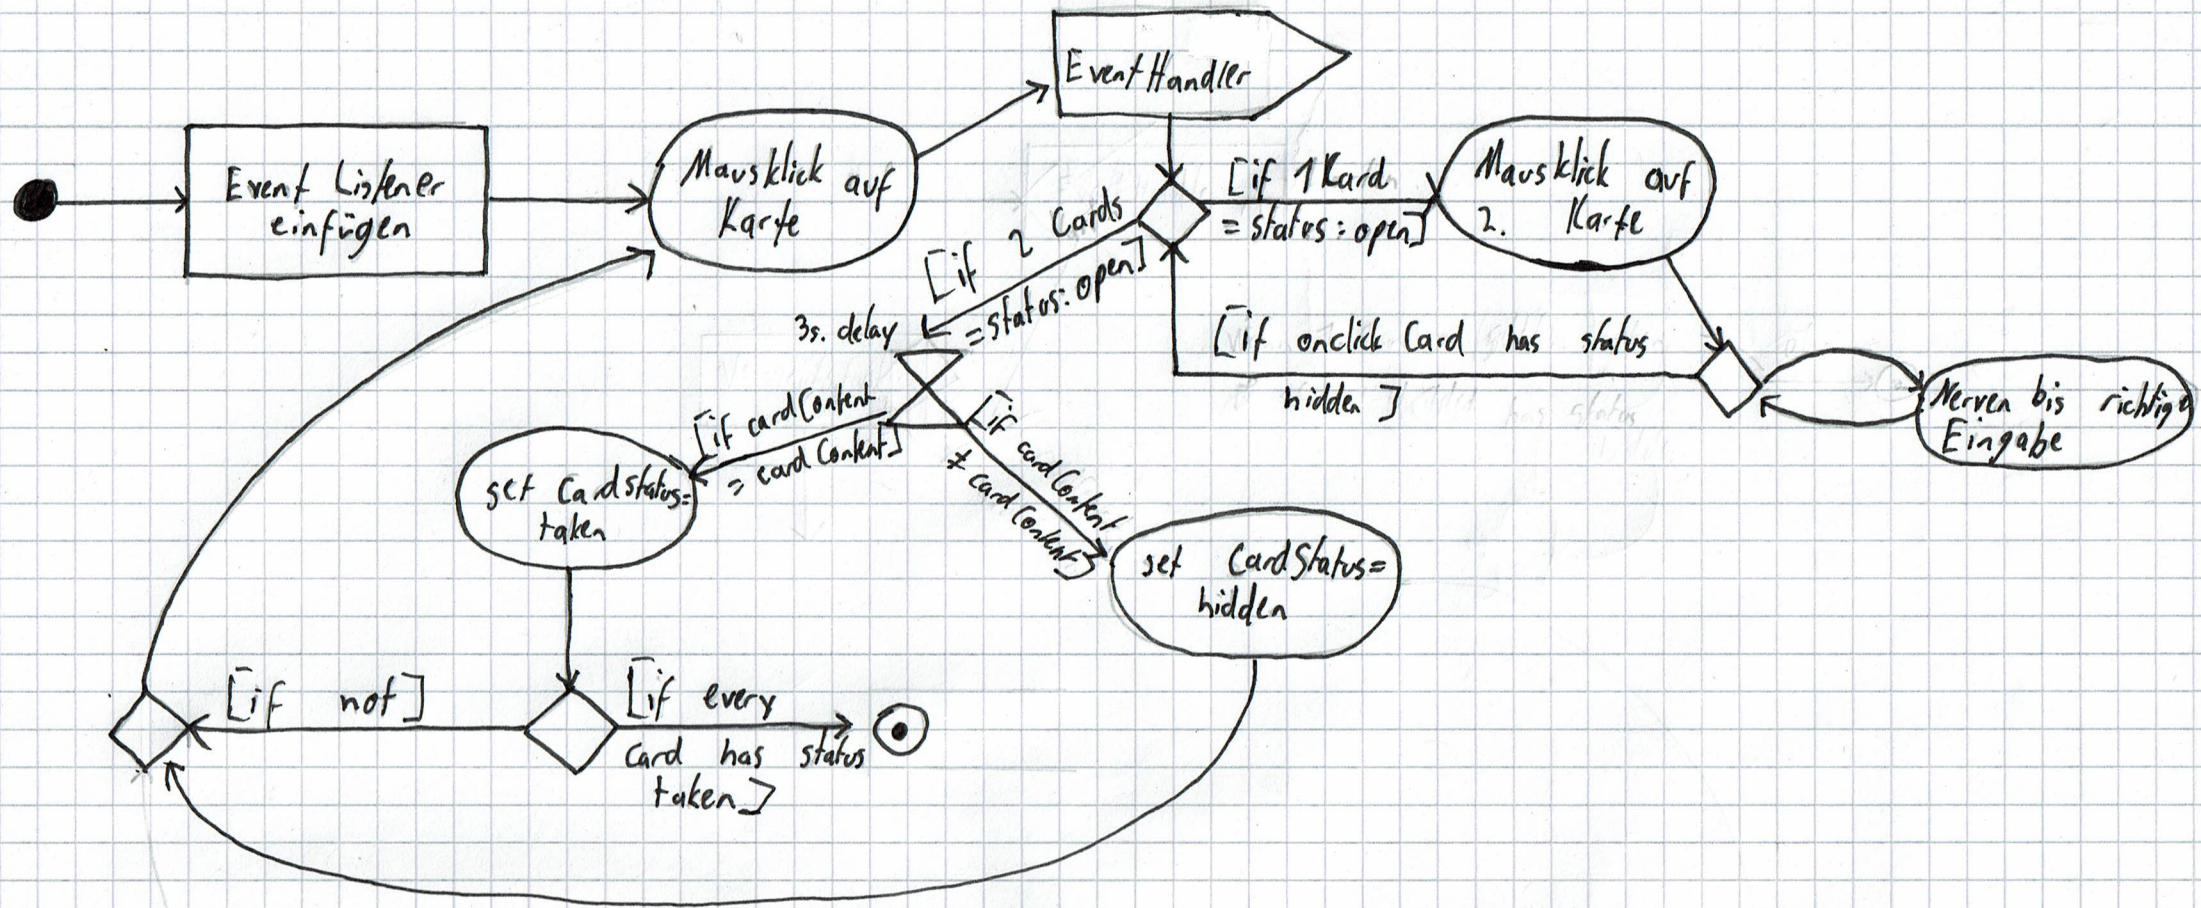 Event Handler
Event Listener
einfügen
Mausklick auf
Karte
[if 1 Kard
= status: open]
Mausklick auf
2. Karte
[if 2 Cards
= status: open]
3s. delay
[if onclick Card has status
hidden]
Nerven bis richtige
Eingabe
[if cardContent
= cardContent]
[if cardContent
≠ cardContent]
set Cardstatus=
taken
set CardStatus=
hidden
[if not]
[if every
card has status
taken]